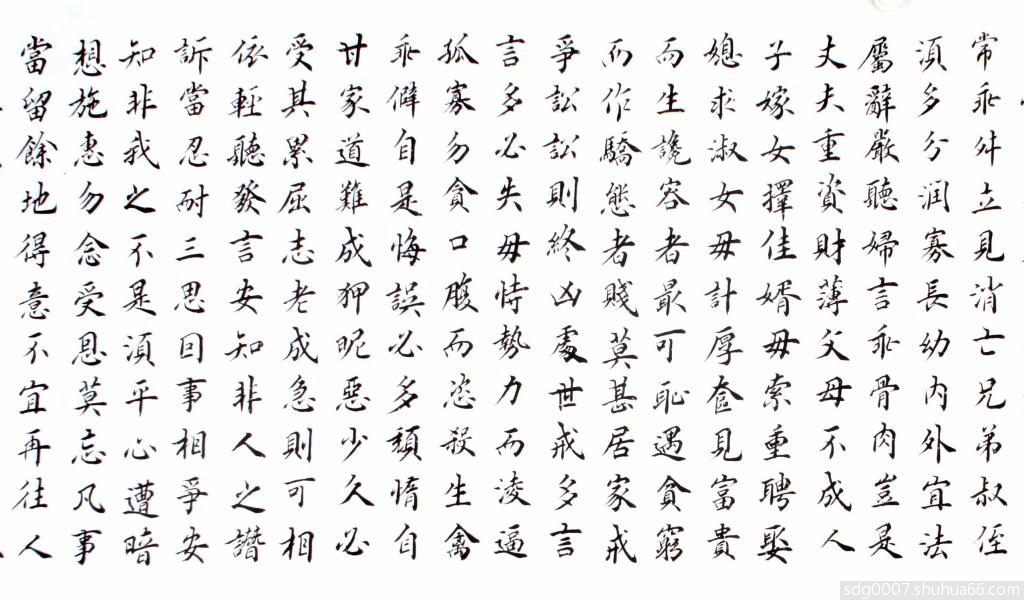 常乖舛立見消亡兄弟叔侄
須多分润寡長幼内外宜法
屬辭嚴聽婦言乖骨肉豈是
丈夫重資財薄父母不成人
子嫁女擇佳婿毋索重聘娶
媳求淑女毋計厚奩見富貴
而生讒容者最可恥遇貪窮
而作驕態者賤莫甚居家戒
爭訟訟則終凶處世戒多言
言多必失毋恃勢力而淩逼
孤寡勿貪口腹而恣殺生禽
乖僻自是悔誤必多頹惰自
甘家道難成狎昵惡少久必
受其累屈志老成急則可相
依輕聽發言安知非人之譖
訴當忍耐三思因事相爭安
知非我之不是須平心遭暗
想施惠勿念受恩莫忘凡事
當留餘地得意不宜再往人
sdg0007.shuhua66.com